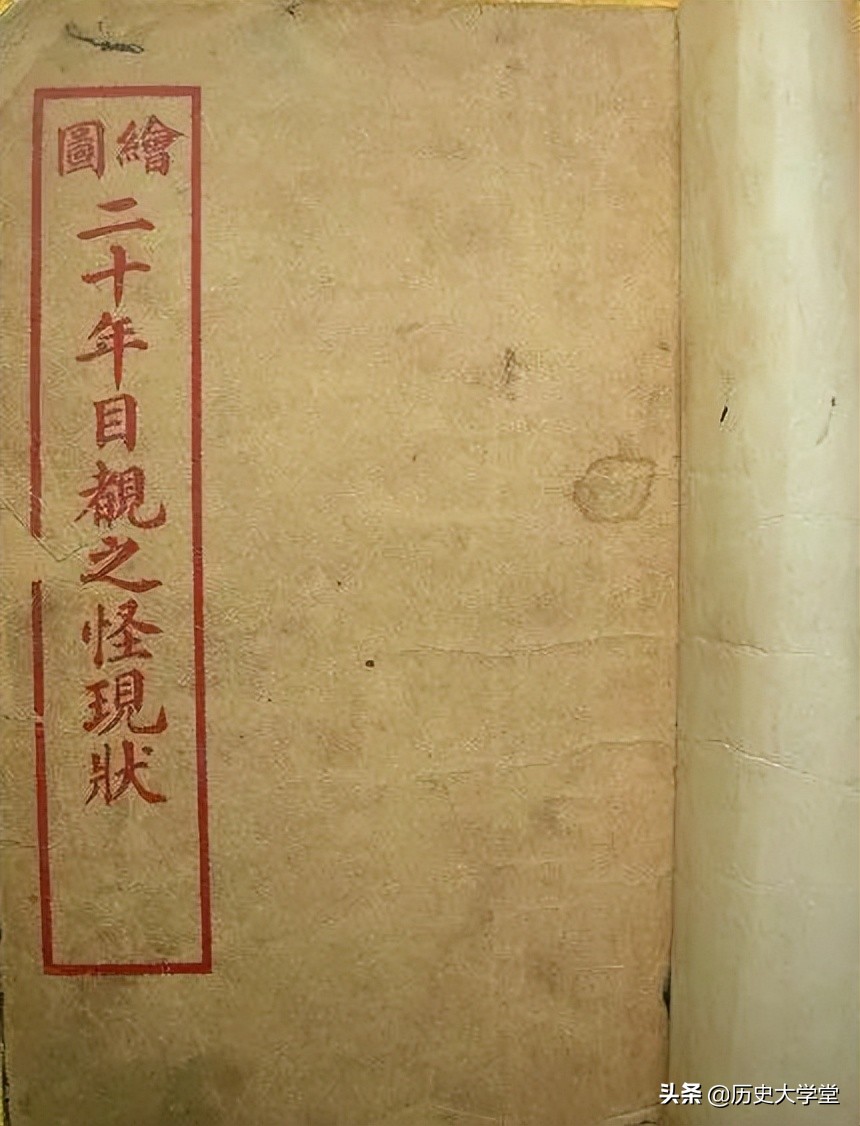 繪圖
二十年目覩之怪現狀
头条 @历史大学堂